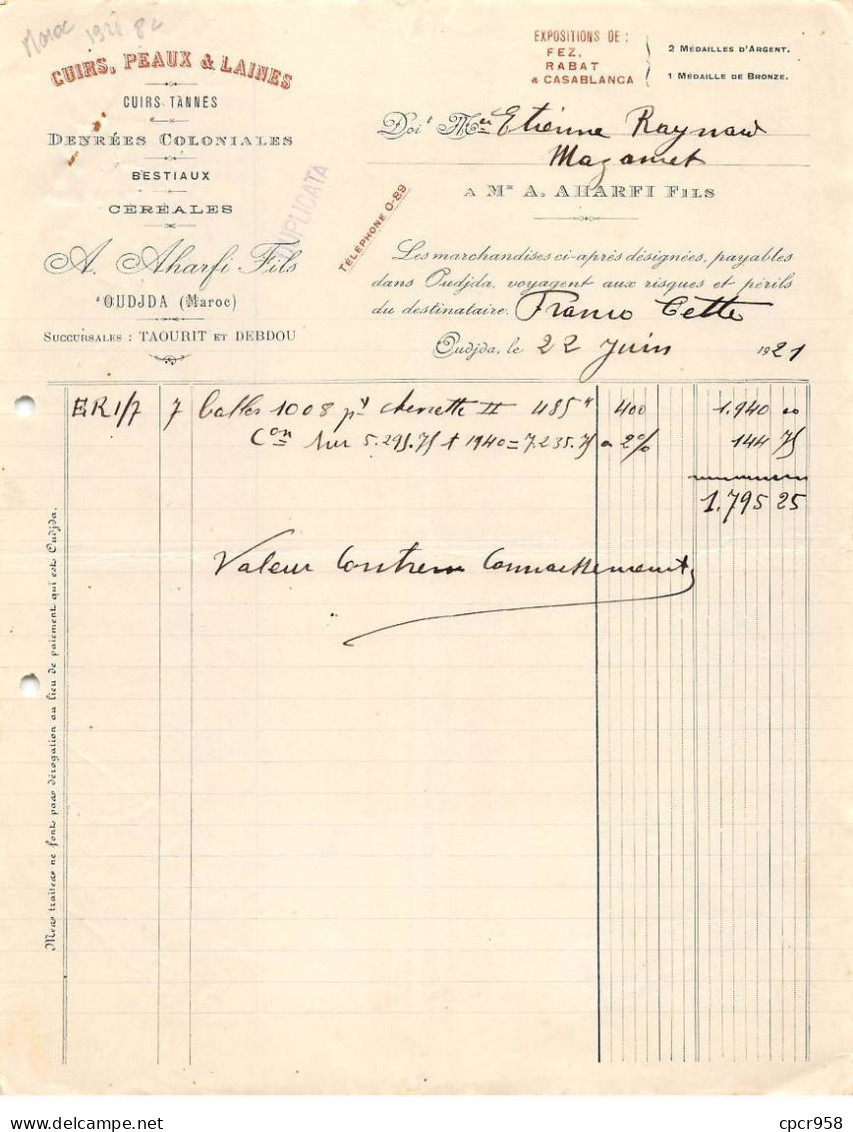 Maroc 1921 82
CUIRS, PEAUX & LAINES
CUIRS TANNÉS
DENRÉES COLONIALES
BESTIAUX
CÉRÉALES
A. Aharfi Fils
OUDJDA (Maroc)
SUCCURSALES : TAOURIT ET DEBDOU
DUPLICATA
TÉLÉPHONE 0-89
EXPOSITIONS DE :
FEZ,
RABAT
& CASABLANCA
2 MÉDAILLES D'ARGENT.
1 MÉDAILLE DE BRONZE.
Doit Mr Etienne Raynaud
Mazamet
A MR A. AHARFI FILS
Les marchandises ci-après désignées, payables
dans Oudjda, voyagent aux risques et périls
du destinataire. Franco Cette
Oudjda, le 22 Juin 1921
ER 1/7 7 balles 1008 px chevrette II 485 k 400 1.940 00
Con sur 5.295.75 + 1940 = 7.235.75 a 2% 144 75
1.795 25
Valeur Contre Connaissement
Mes traites ne font pas dérogation au lieu de paiement qui est Oudjda.
cpcr958